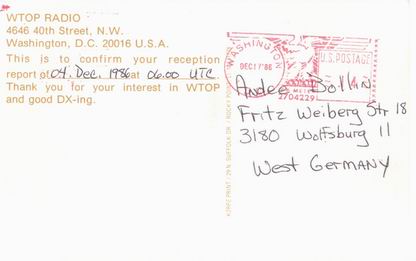 WTOP RADIO
4646 40th Street, N.W.
Washington, D.C. 20016 U.S.A.
This is to confirm your reception
report of 04. Dec. 1986 at 06.00 UTC.
Thank you for your interest in WTOP
and good DX-ing.
WASHINGTON
DEC17'86
U.S. POSTAGE
METER
2704229
Andre Bollin
Fritz Weiberg Str 18
3180 Wolfsburg 11
West Germany